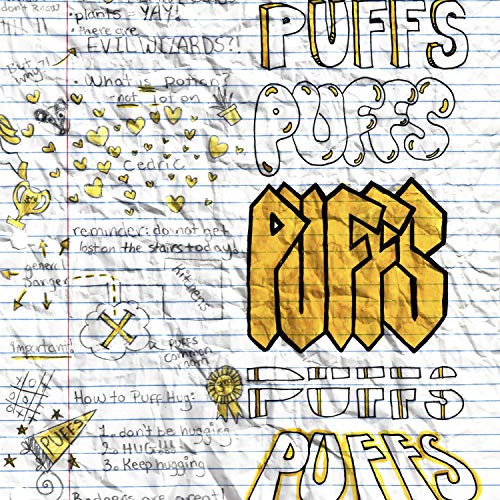 don't know
plants = YAY!
there are
EVIL WIZARDS?!
But
why
What is Potion?
not
lot on
cedric
reminder: do not get
lost on the stairs today
Kitchens
X
PUFFS
common
room
important!
How to Puff Hug:
1. don't be hugging
2. HUG!!!
3. Keep hugging
Badgers are great!
PUFFS
PUFFS
PUFFS
PUFFS
PUFFS
PUFFS